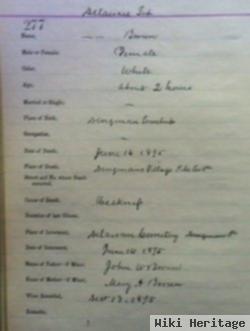 Delaware Twp
277
Name, — — Brown
Male or Female: Female
Color: White
Age: About 2 hours
Married or Single: —
Place of Birth: Dingman Township
Occupation: —
Date of Death: June 14 1895
Place of Death: Dingmans Village Pike Co
Street and No. where Death occurred.
Cause of Death:
Duration of last Illness.
Place of Interment, Delaware Cemetery Dingmans
Date of Interment, June 14 1895
Name of Father—if Minor: John W Brown
Name of Mother—if Minor: Mary A Brown
When Recorded, Sept 13, 1895
Remarks.
Wiki Heritage